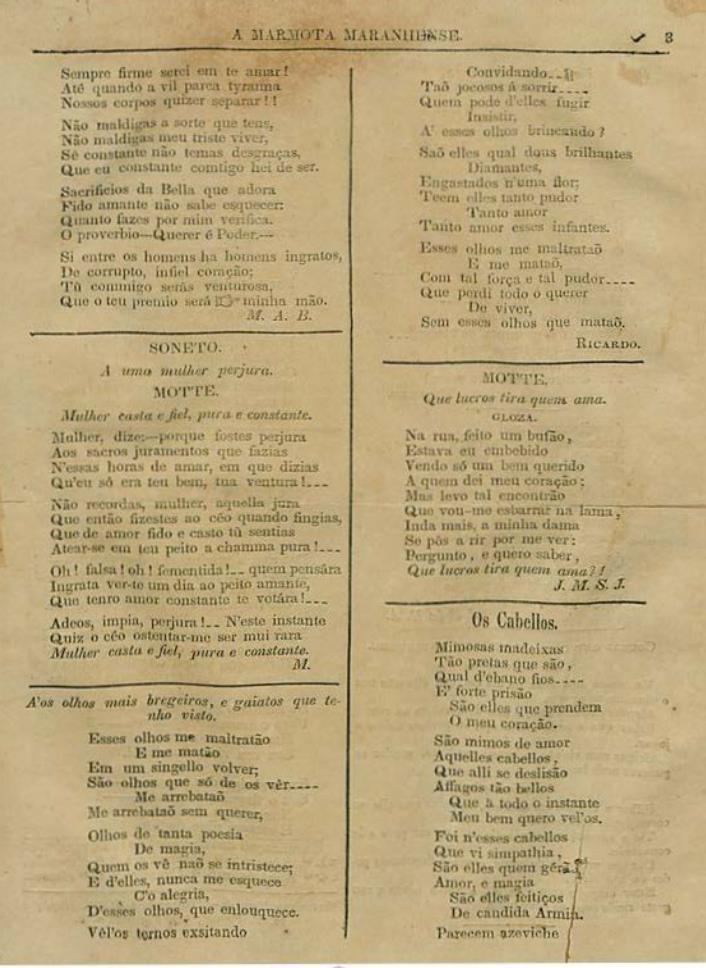 A MARMOTA MARANHENSE.
3
Sempre firme serei em te amar!
Até quando a vil parca tyranna
Nossos corpos quizer separar!!
Não maldigas a sorte que tens,
Não maldigas meu triste viver,
Sê constante não temas desgraças,
Que eu constante comtigo hei de ser.
Sacrificios da Bella que adora
Fido amante não sabe esquecer:
Quanto fazes por mim verifica.
O proverbio—Querer é Poder.—
Si entre os homens ha homens ingratos,
De corrupto, infiel coração;
Tû commigo serás venturosa,
Que o teu premio será ☞ minha mão.
M. A. B.
SONETO.
A uma mulher perjura.
MOTTE.
Mulher casta e fiel, pura e constante.
Mulher, dize:—porque fostes perjura
Aos sacros juramentos que fazias
N'essas horas de amar, em que dizias
Qu'eu só era teu bem, tua ventura!...
Não recordas, mulher, aquella jura
Que então fizestes ao céo quando fingias,
Que de amor fido e casto tû sentias
Atear-se em teu peito a chamma pura!...
Oh! falsa! oh! fementida!.. quem pensára
Ingrata ver-te um dia ao peito amante,
Que tenro amor constante te votára!...
Adeos, impia, perjura!.. N'este instante
Quiz o céo ostentar-me ser mui rara
Mulher casta e fiel, pura e constante.
M.
A'os olhos mais bregeiros, e gaiatos que te-
nho visto.
Esses olhos me maltratão
E me matão
Em um singello volver;
São olhos que só de os vêr....
Me arrebataõ
Me arrebataõ sem querer,
Olhos de tanta poesia
De magia,
Quem os vê naõ se intristece;
E d'elles, nunca me esquece
C'o alegria,
D'esses olhos, que enlouquece.
Vêl'os ternos exsitando
Convidando..
Taõ jocosos á sorrir....
Quem pode d'elles fugir
Insistir,
A' esses olhos brincando?
Saõ elles qual dous brilhantes
Diamantes,
Engastados n'uma flor;
Teem elles tanto pudor
Tanto amor
Tanto amor esses infantes.
Esses olhos me maltrataõ
E me mataõ,
Com tal força e tal pudor....
Que perdi todo o querer
De viver,
Sem esses olhos que mataõ.
RICARDO.
MOTTE.
Que lucros tira quem ama.
GLOZA.
Na rua, feito um bufão,
Estava eu embebido
Vendo só um bem querido
A quem dei meu coração;
Mas levo tal encontrão
Que vou-me esbarrar na lama,
Inda mais, a minha dama
Se pôs a rir por me ver:
Pergunto, e quero saber,
Que lucros tira quem ama?!
J. M. S. J.
Os Cabellos.
Mimosas madeixas
Tão pretas que são,
Qual d'ebano fios....
E' forte prisão
São elles que prendem
O meu coração.
São mimos de amor
Aquelles cabellos,
Que alli se deslisão
Affagos tão bellos
Que à todo o instante
Meu bem quero vel'os.
Foi n'esses cabellos
Que vi simpathia,
São elles quem gérã
Amor, e magia
São elles feitiços
De candida Armia.
Parecem azeviche